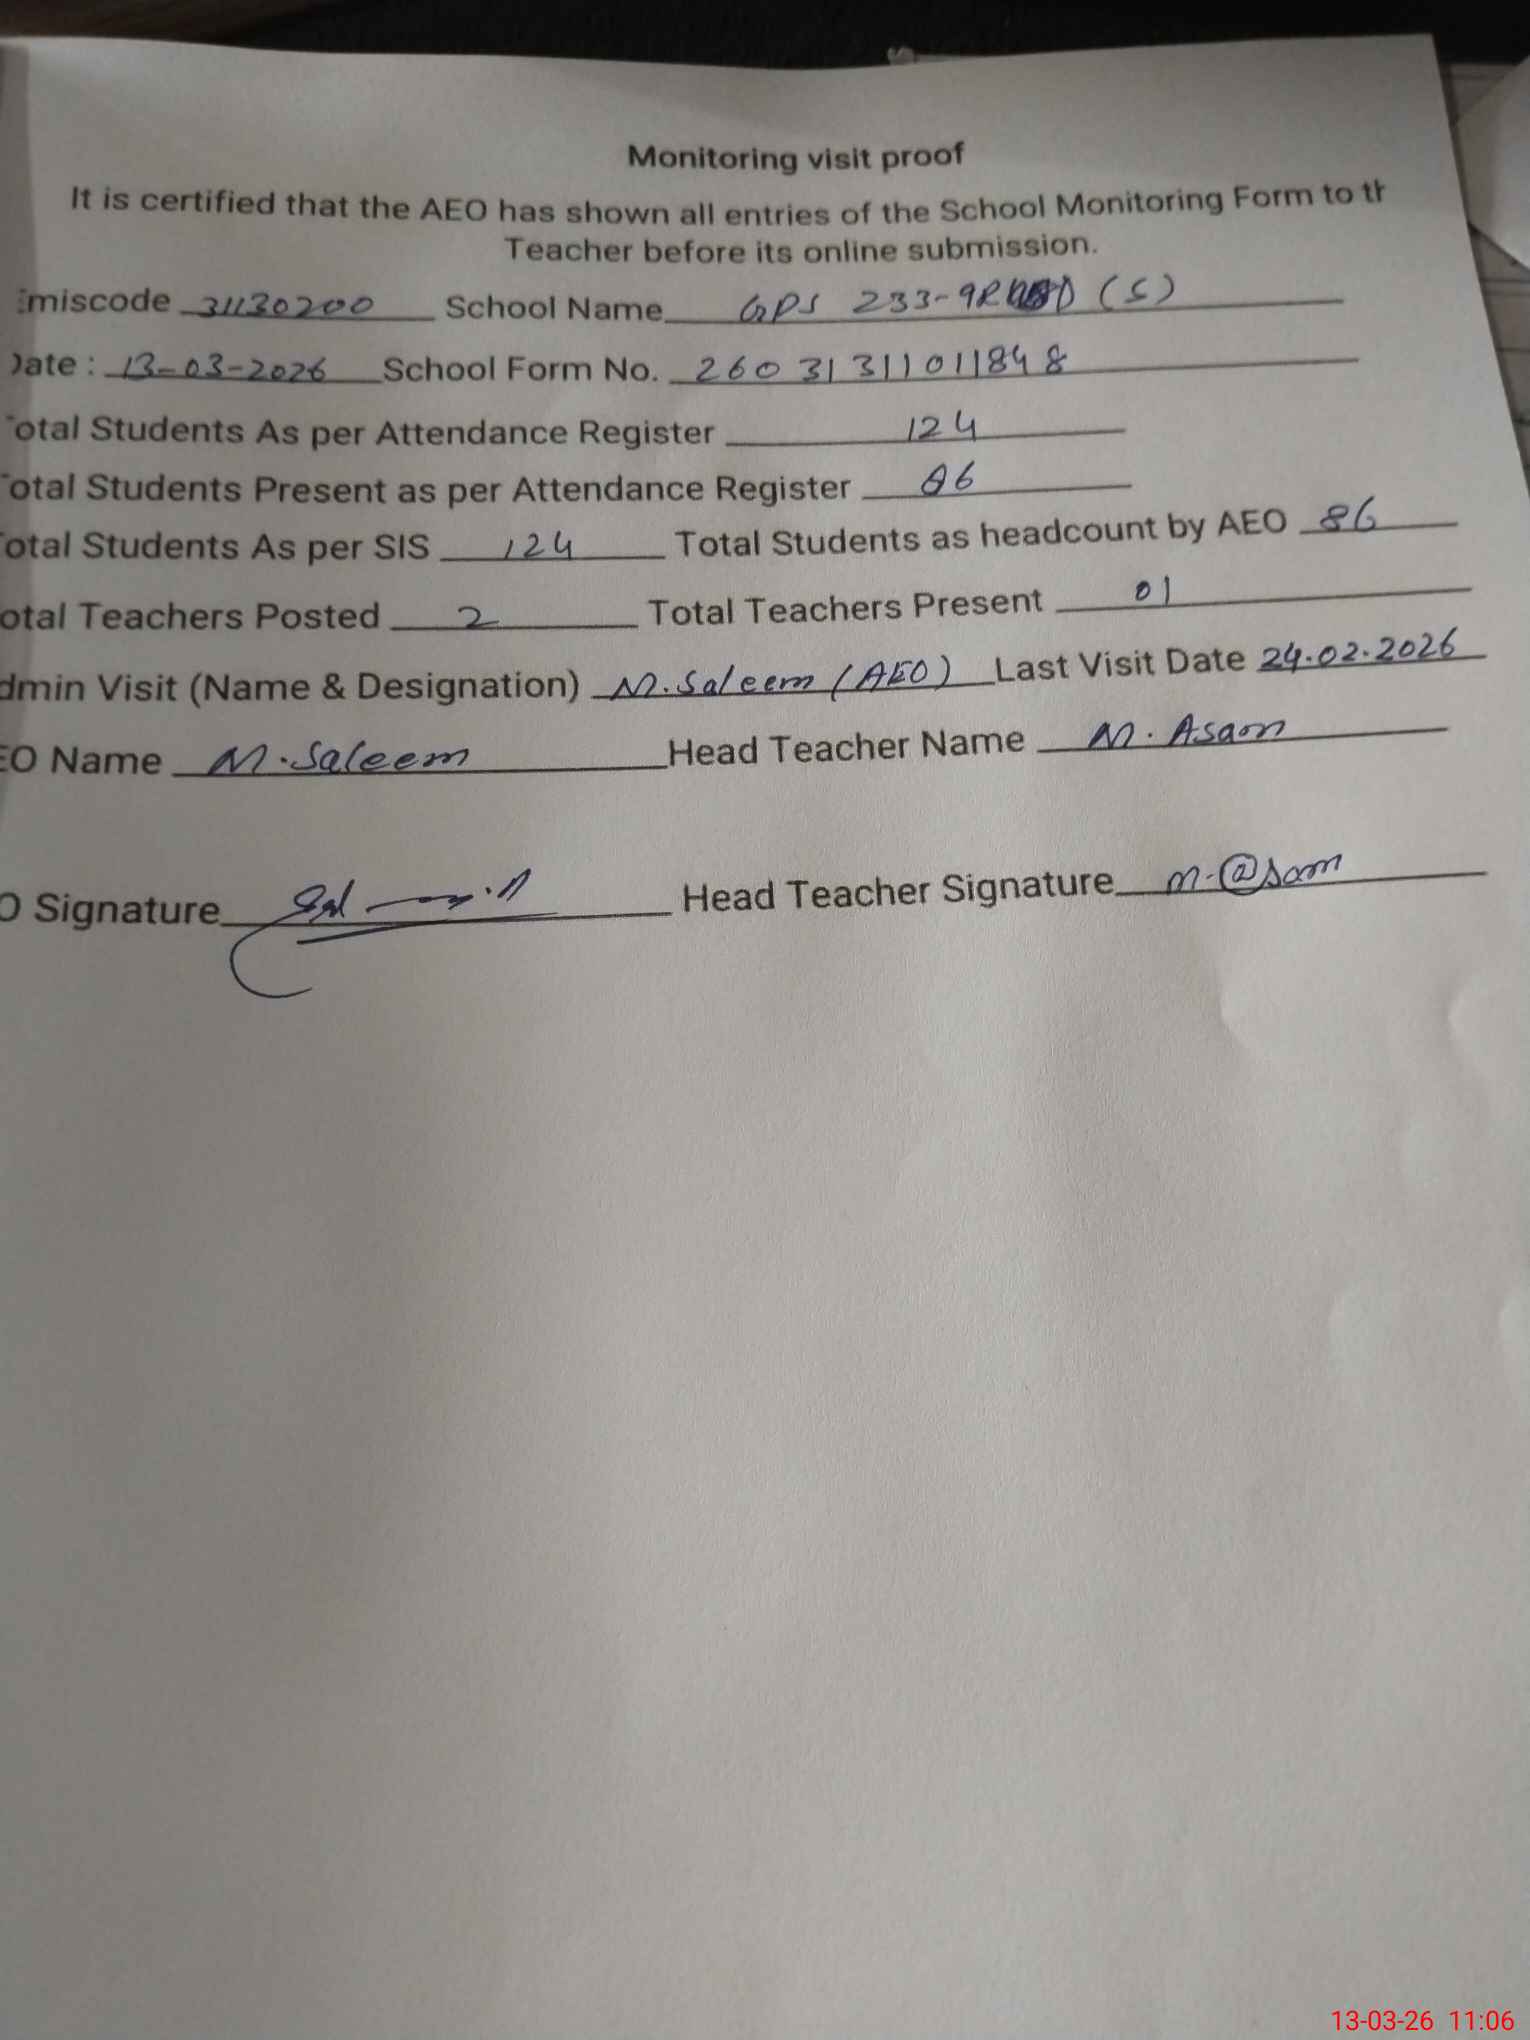 Monitoring visit proof
It is certified that the AEO has shown all entries of the School Monitoring Form to th
Teacher before its online submission.
Emiscode 31130200 School Name GPS 233-9R (S)
Date : 13-03-2026 School Form No. 2603131101 1848
Total Students As per Attendance Register 124
Total Students Present as per Attendance Register 86
Total Students As per SIS 124 Total Students as headcount by AEO 86
otal Teachers Posted 2 Total Teachers Present 01
dmin Visit (Name & Designation) M. Saleem (AEO) Last Visit Date 24.02.2026
EO Name M. Saleem Head Teacher Name M. Asam
O Signature Head Teacher Signature M. @sam
13-03-26 11:06